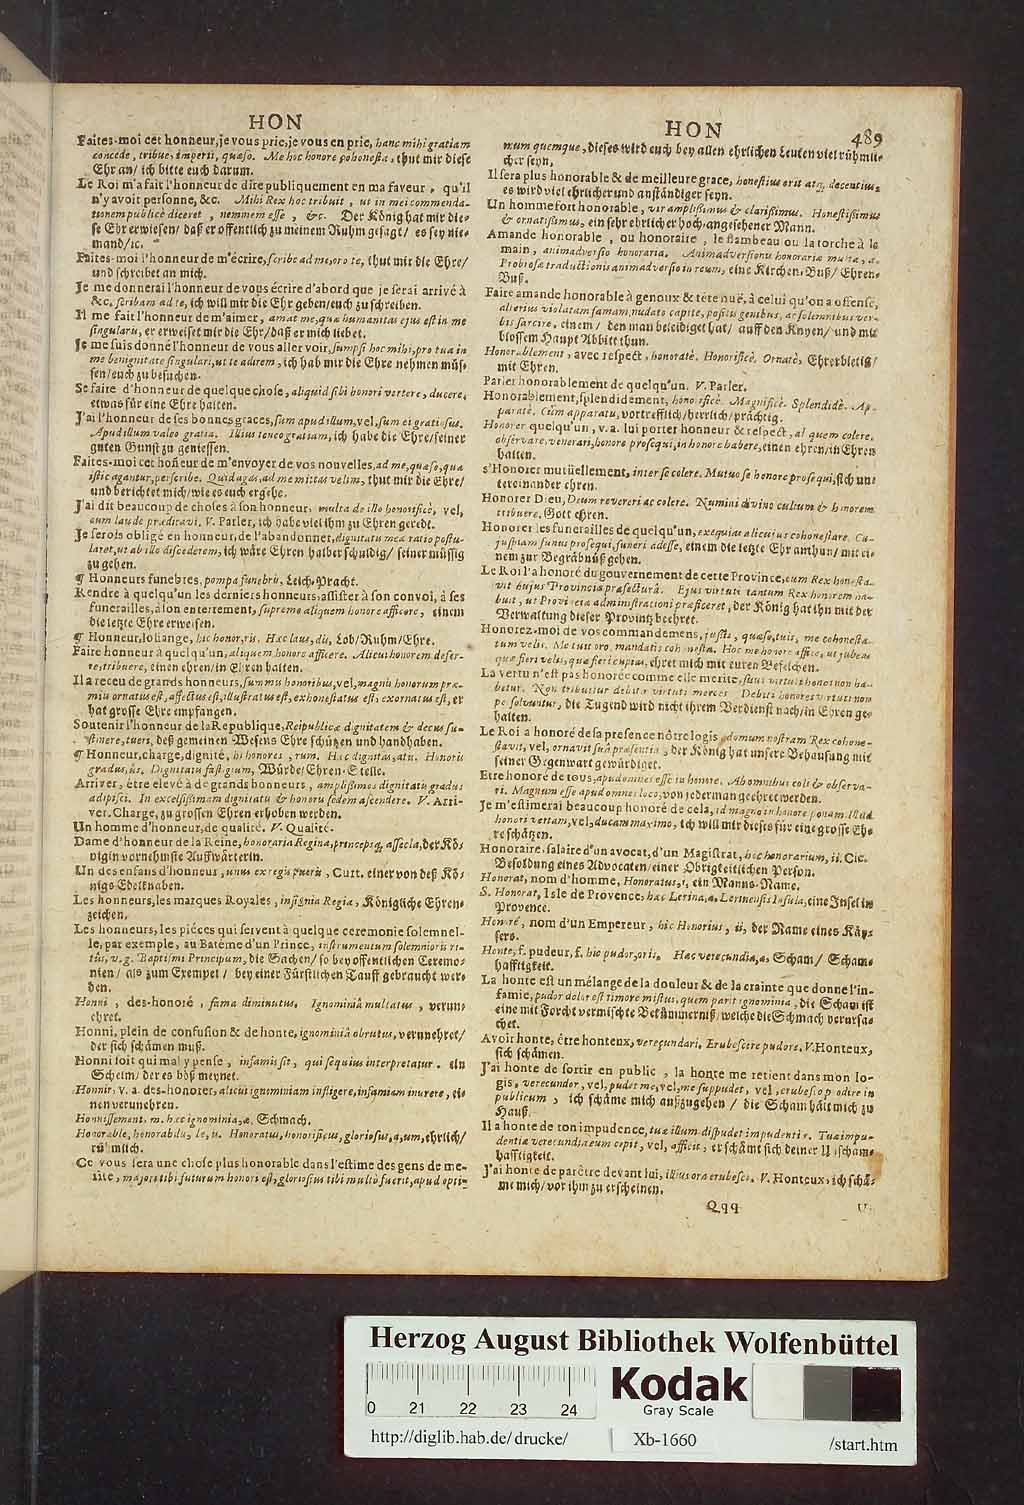 HON
Faites-moi cet honneur, je vous prie, je vous en prie, hanc mihi gratiam
concede, tribue, imperti, quæso. Me hoc honore cohonesta, thut mir diese
Ehr an/ ich bitte euch darum.
Le Roi m'a fait l'honneur de dire publiquement en ma faveur, qu'il
n'y avoit personne, &c. Mihi Rex hoc tribuit, ut in mei commenda-
tionem publicè diceret, neminem esse, &c. Der König hat mir die-
se Ehr erwiesen/ daß er offentlich zu meinem Ruhm gesagt/ es sey nie-
mand/ ꝛc.
Faites-moi l'honneur de m'écrire, scribe ad me, oro te, thut mir die Ehre/
und schreibet an mich.
Je me donnerai l'honneur de vous écrire d'abord que je serai arrivé à
&c. scribam ad te, ich will mir die Ehr geben/ euch zu schreiben.
Il me fait l'honneur de m'aimer, amat me, quæ humanitas ejus est in me
singularis, er erweiset mir die Ehr/ daß er mich liebet.
Je me suis donné l'honneur de vous aller voir, sumpsi hoc mihi, pro tua in
me benignitate singulari, ut te adirem, ich hab mir die Ehre nehmen müs-
sen/ euch zu besuchen.
Se faire d'honneur de quelque chose, aliquid sibi honori vertere, ducere,
etwas für eine Ehre halten.
J'ai l'honneur de ses bonnes graces, sum apud illum, vel, sum ei gratiosus.
Apud illum valeo gratia. Illius teneo gratiam, ich habe die Ehre/ seiner
guten Gunst zu geniessen.
Faites-moi cet hoñeur de m'envoyer de vos nouvelles, ad me, quæso, quæ
istic agantur, perscribe. Quid agas, ad me mittas velim, thut mir die Ehre/
und berichtet mich/ wie es euch ergehe.
J'ai dit beaucoup de choses à son honneur, multa de illo honorificè, vel,
cum laude prædicavi. V. Parler, ich habe viel ihm zu Ehren geredt.
Je serois obligé en honneur, de l'abandonner, dignitatis meæ ratio postu-
laret, ut ab illo discederem, ich wäre Ehren halber schuldig/ seiner müssig
zu gehen.
¶ Honneurs funebres, pompa funebris, Leich-Pracht.
Rendre à quelqu'un les derniers honneurs, assister à son convoi, à ses
funerailles, à son enterrement, supremo aliquem honore afficere, einem
die letzte Ehre erweisen.
¶ Honneur, loüange, hic honor, ris. Hæc laus, dis, Lob/ Ruhm/ Ehre.
Faire honneur à quelqu'un, aliquem honore afficere. Alicui honorem defer-
re, tribuere, einen ehren/ in Ehren halten.
Il a receu de grands honneurs, summis honoribus, vel, magnis honorum præ-
miis ornatus est, affectus est, illustratus est, exhonestatus est, exornatus est, er
hat grosse Ehre empfangen.
Soutenir l'honneur de la Republique, Reipublicæ dignitatem & decus su-
stinere, tueri, deß gemeinen Wesens Ehre schützen und handhaben.
¶ Honneur, charge, dignité, hi honores, rum. Hæc dignitas, atis. Honoris
gradus, ûs. Dignitatis fastigium, Würde/ Ehren-Stelle.
Arriver, être elevé à de grands honneurs, amplissimos dignitatis gradus
adipisci. In excelsissimam dignitatis & honoris sedem ascendere. V. Arri-
ver. Charge, zu grossen Ehren erhoben werden.
Un homme d'honneur, de qualité. V. Qualité.
Dame d'honneur de la Reine, honoraria Reginæ, princepsq; assecla, der Kö-
nigin vornehmste Auffwärterin.
Un des enfans d'honneur, unus ex regiis pueris, Curt. einer von deß Kö-
nigs Edelknaben.
Les honneurs, les marques Royales, insignia Regia, Königliche Ehren-
zeichen.
Les honneurs, les piéces qui servent à quelque ceremonie solemnel-
le, par exemple, au Batême d'un Prince, instrumentum solemnioris ri-
tûs, v. g. Baptismi Principum, die Sachen/ so bey offentlichen Ceremo-
nien/ als zum Exempel/ bey einer Fürstlichen Tauff gebraucht wer-
den.
Honni, des-honoré, fama diminutus. Ignominiâ multatus, verun-
ehret.
Honni, plein de confusion & de honte, ignominiâ obrutus, verunehret/
der sich schämen muß.
Honni soit qui mal y pense, infamis sit, qui sequius interpretatur. ein
Schelm/ der es böß meynet.
Honnir, v. a. des-honorer, alicui ignominiam infligere, infamiam inurere, ei-
nen verunehren.
Honnissement. m. hæc ignominia, æ. Schmach.
Honorable, honorabilis, le, is. Honoratus, honorificus, gloriosus, a, um, ehrlich/
rühmlich.
Ce vous sera une chose plus honorable dans l'estime des gens de me-
rite, majori tibi futurum honori est, gloriosius tibi multò fuerit, apud opti-
HON 489
mum quemque, dieses wird euch bey allen ehrlichen Leuten viel rühmli-
cher seyn.
Il sera plus honorable & de meilleure grace, honestius erit atq; decentius,
es wird viel ehrlicher und anständiger seyn.
Un homme fort honorable, vir amplissimus & clarissimus. Honestissimus
& ornatissimus, ein sehr ehrlicher hoch-angesehener Mann.
Amande honorable, ou honoraire, le flambeau ou la torche à la
main, animadversio honoraria. Animadversionis honorariæ multa, æ.
Probrosæ traductionis animadversio in reum, eine Kirchen-Buß/ Ehren-
Buß.
Faire amande honorable à genoux & tête nuë, à celui qu'on a offensé,
alterius violatam famam, nudato capite, positis genibus, ac solemnibus ver-
bis sarcire. einem/ den man beleidiget hat/ auff den Knyen/ und mit
blossem Haupt Abbitt thun.
Honorablement, avec respect, honoratè. Honorificè. Ornatè, Ehrerbietig/
mit Ehren.
Parler honorablement de quelqu'un. V. Parler.
Honorablement, splendidement, honorificè. Magnificè. Splendidè. Ap-
paratè. Cum apparatu, vortrefflich/ herrlich/ prächtig.
Honorer quelqu'un, v. a. lui porter honneur & respect, aliquem colere,
observare, venerari, honore prosequi, in honore habere, einen ehren/ in Ehren
halten.
s'Honorer mutüellement, inter se colere. Mutuo se honore prosequi, sich un-
tereinander ehren.
Honorer Dieu, Deum revereri ac colere. Numini divino cultum & honorem
tribuere, Gott ehren.
Honorer les funerailles de quelqu'un, exequias alicujus cohonestare. Cu-
juspiam funus prosequi, funeri adesse, einem die letzte Ehr anthun/ mit ei-
nem zur Begräbnüß gehen.
Le Roi l'a honoré du gouvernement de cette Province, eum Rex honesta-
vit hujus Provinciæ præfecturâ. Ejus virtuti tantum Rex honorem ha-
buit, ut Provinciæ administrationi præficeret, der König hat ihn mit der
Verwaltung dieser Provintz beehret.
Honorez-moi de vos commandemens, jussis, quæso, tuis, me cohonesta-
tum velis. Me tuis oro, mandatis cohonesta. Hoc me honore affice, ut jubeas
quæ fieri velis, quæ fieri cupias, ehret mich mit euren Befelchen.
La vertu n'est pas honorée comme elle merite, suus virtuti honos non ha-
betur. Non tribuitur debita virtuti merces. Debitis honores virtuti non
persolvuntur, die Tugend wird nicht ihrem Verdienst nach/ in Ehren ge-
halten.
Le Roi a honoré de sa presence nôtre logis, domum nostram Rex cohone-
stavit, vel, ornavit suâ præsentiâ, der König hat unsere Behausung mit
seiner Gegenwart gewürdiget.
Etre honoré de tous, apud omnes esse in honore. Ab omnibus coli & observa-
ri. Magnum esse apud omnes loco, von jederman geehret werden.
Je m'estimerai beaucoup honoré de cela, id magno in honore ponam. Illud
honori vertam, vel, ducam maximo, ich will mir dieses für eine grosse Eh-
re schätzen.
Honoraire, salaire d'un avocat, d'un Magistrat, hoc honorarium, ii. Cic.
Besoldung eines Advocaten/ einer Obrigkeitlichen Person.
Honorat, nom d'homme, Honoratus, i, ein Manns-Name.
S. Honorat, Isle de Provence, hæc Lerina, æ. Lerinensis Insula, eine Insel in
Provence.
Honoré, nom d'un Empereur, hic Honorius, ii, der Name eines Käy-
sers.
Honte, f. pudeur, f. hic pudor, oris. Hæc verecundia, æ. Scham/ Scham-
hafftigkeit.
La honte est un mélange de la douleur & de la crainte que donne l'in-
famie, pudor dolor est timore mistus, quem parit ignominia, die Scham ist
eine mit Forcht vermischte Bekümmerniß/ welche die Schmach verursa-
chet.
Avoir honte, être honteux, verecundari. Erubescere pudore. V. Honteux,
sich schämen.
J'ai honte de sortir en public, la honte me retient dans mon lo-
gis, verecundor, vel, pudet me, vel, me suppudet, vel, erubesco prodire in
publicum, ich schäme mich außzugehen/ die Scham hält mich zu
Hauß.
Il a honte de ton impudence, tuæ illum dispudet impudentiæ. Tuæ impu-
dentiæ verecundia eum cepit, vel, afficit, er schämt sich deiner Unscham-
hafftigkeit.
J'ai honte de parêtre devant lui, illius ora erubesco. V. Honteux, ich schä-
me mich/ vor ihm zu erscheinen.
Qqq
Herzog August Bibliothek Wolfenbüttel
0 21 22 23 24
Kodak
Gray Scale
http://diglib.hab.de/drucke/ Xb-1660 /start.htm